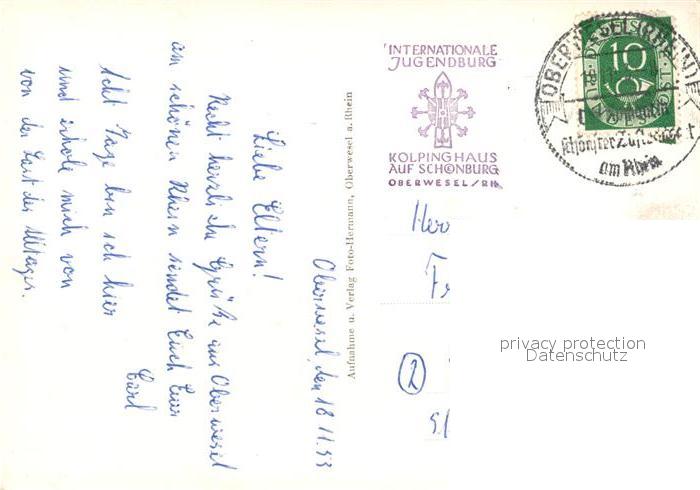 Oberwesel, den 18.11.53
Liebe Eltern!
Recht herzliche Grüße aus Oberwesel
am schönen Rhein sendet Euch Euer
Carl
Acht Tage bin ich hier
und erhole mich von
von der Last des Alltages.
Aufnahme u. Verlag Foto-Hermann, Oberwesel a. Rhein
INTERNATIONALE
JUGENDBURG
KOLPINGHAUS
AUF SCHÖNBURG
OBERWESEL/RH.
OBERWESEL (RHEIN)
10
am Rhein
Herr
Fr
2
privacy protection
Datenschutz